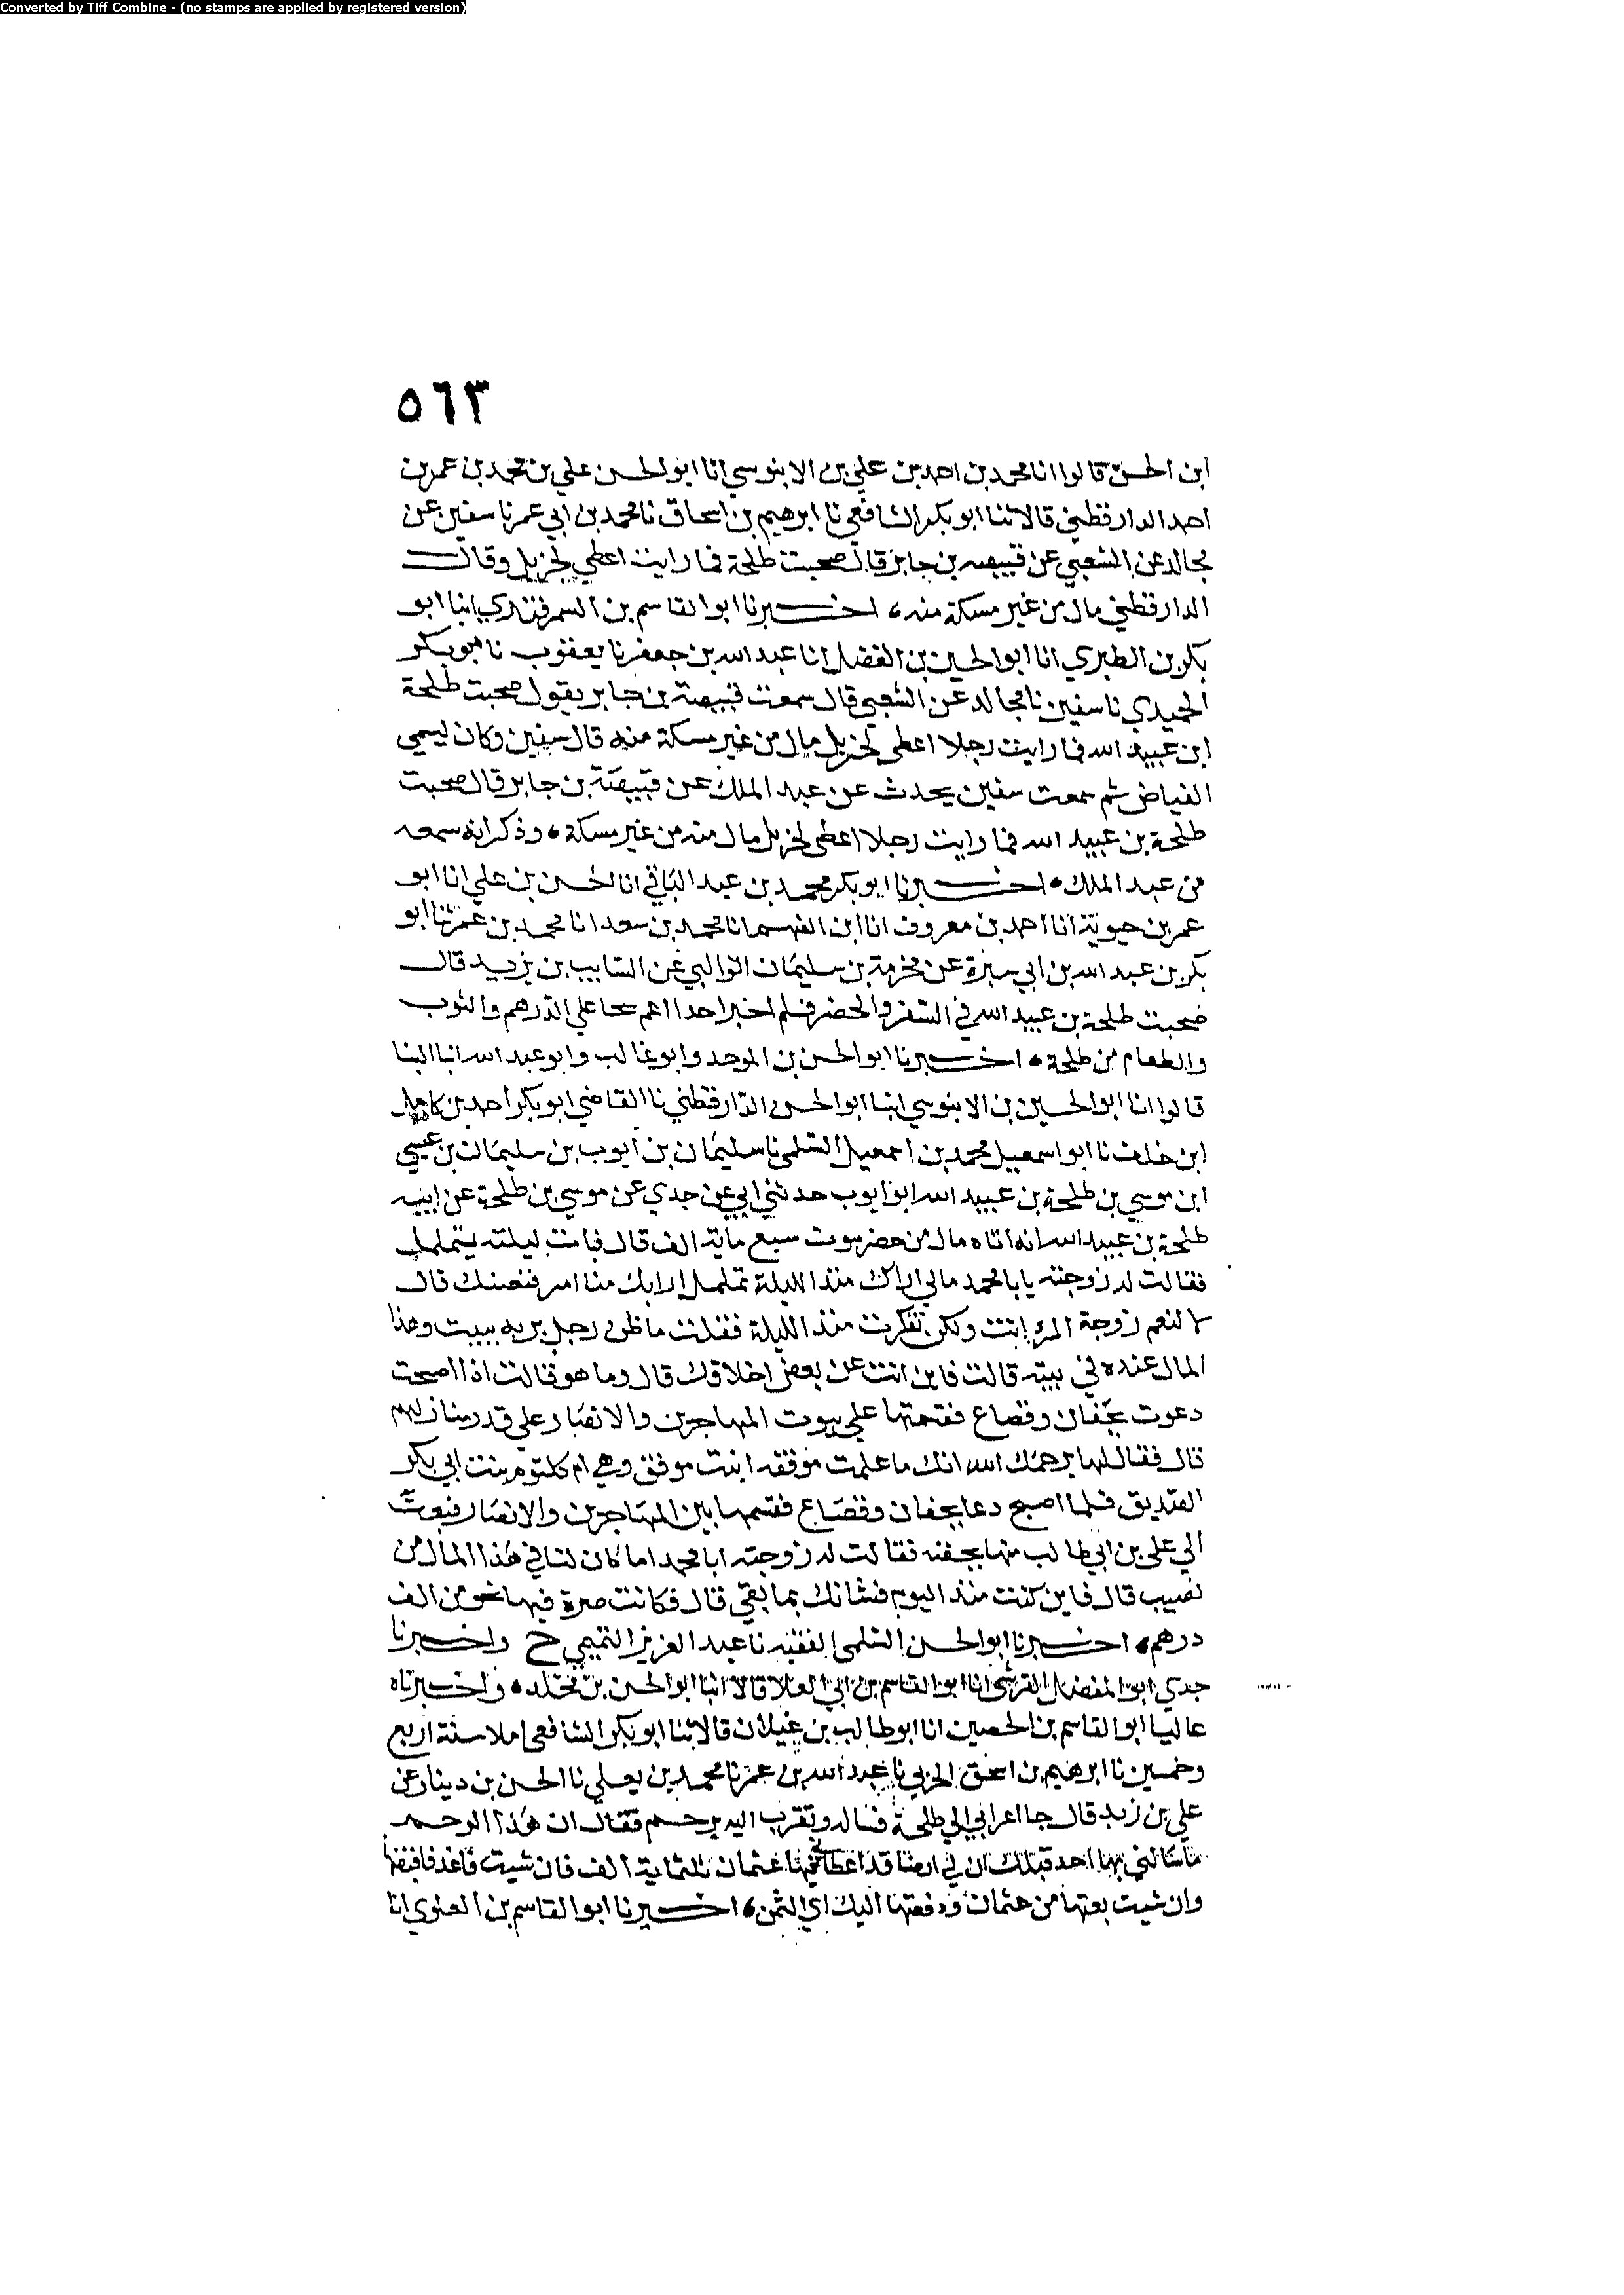 Converted by Tiff Combine - (no stamps are applied by registered version)
٥٦٣
ابن الحسن قالوا انا محمد بن احمد بن علي بن الابنوسي انا ابو الحسن علي بن محمد بن عمر بن
احمد الدارقطني قالا ثنا ابو بكر الشافعي نا ابرهيم بن اسحاق نا محمد بن ابي عمر نا سفين عن
مجالد عن الشعبي عن قبيصه بن جابر قال صحبت طلحة فما رايت اعطي لجزيل وقال
الدارقطني مال من غير مسكة منه، اخبرنا ابو القاسم بن السمرقندي انبا ابو
بكر بن الطبري انا ابو الحسين بن الفضل انا عبد الله بن جعفر نا يعقوب نا ابو بكر
الحميدي نا سفين نا مجالد عن الشعبي قال سمعت قبيصة بن جابر يقول صحبت طلحة
ابن عبيد الله فما رايت رجلا اعطى لجزيل مال من غير مسكة منه قال سفين وكان يسمي
الفياض ثم سمعت سفين يحدث عن عبد الملك عن قبيصة بن جابر قال صحبت
طلحة بن عبيد الله فما رايت رجلا اعطى لجزيل مال منه من غير مسكة، وذكر انه سمعه
من عبد الملك، اخبرنا ابو بكر محمد بن عبد الباقي انا الحسن بن علي انا ابو
عمر بن حيوية انا احمد بن معروف انا ابن الفهم انا محمد بن سعد انا محمد بن عمر ثنا ابو
بكر بن عبد الله بن ابي سبرة عن مخرمة بن سليمان الوالبي عن السايب بن يزيد قال
صحبت طلحة بن عبيد الله في السفر والحضر فلم اخبر احدا اعم سخا علي الدرهم والثوب
والطعام من طلحة، اخبرنا ابو الحسن بن الموحد وابو غالب وابو عبد الله انبا البنا
قالوا انا ابو الحسين بن الابنوسي انبا ابو الحسن الدارقطني نا القاضي ابو بكر احمد بن كامل
ابن خلف نا ابو اسمعيل محمد بن اسمعيل السلمي نا سليمان بن ايوب بن سليمان بن عيسي
ابن موسي بن طلحة بن عبيد الله ابو ايوب حدثني ابي عن جدي عن موسي بن طلحة عن ابيه
طلحة بن عبيد الله انه اتاه مال من حضرموت سبع ماية الف قال فبات ليلته يتململ
فقالت له زوجته يابا محمد مالي اراك منذ الليلة تململ ارابك منا امر فنعتبك قال
لا لنعم زوجة المرء انت ولكن تفكرت منذ الليلة فقلت ما ظن رجل بربه يبيت وهذا
المال عنده في بيته قالت فاين انت عن بعض اخلاقك قال وما هو قالت اذا اصبحت
دعوت بجفان وقصاع فقسمتها علي بيوت المهاجرين والانصار علي قدر منازلهم
قال فقال لها يرحمك الله انك ما علمت موفقه ابنت موفق وهي ام كلثوم بنت ابي بكر
الصديق فلما اصبح دعا بجفان وقصاع فقسمها بين المهاجرين والانصار فبعث
الي علي بن ابي طالب منها بجفنه فقالت له زوجته ابا محمد اما كان لنا في هذا المال من
نصيب قال فاين كنت منذ اليوم فشانك بما بقي قال فكانت صرة فيها نحو من الف
درهم، اخبرنا ابو الحسن السلمي الفقيه نا عبد العزيز التميمي ح واخبرنا
جدي ابو المفضل القرشي انا ابو القاسم بن ابي العلا قالا انبا ابو الحسن بن مخلد، واخبرناه
عاليا ابو القاسم بن الحصين انا ابو طالب بن غيلان قالا ثنا ابو بكر الشافعي املا سنة اربع
وخمسين نا ابرهيم بن اسحق الحربي نا عبد الله بن عمر نا محمد بن يعلي نا الحسن بن دينار عن
علي بن زيد قال جا اعرابي الي طلحة فساله وتقرب اليه برحم فقال ان هذا الرحم
ما سالني بها احد قبلك ان لي ارضا قد اعطاني بها عثمان ثلثماية الف فان شيت فاغد فاقبضها
وان شيت بعتها من عثمان ودفعتها اليك اي الثمن، اخبرنا ابو القاسم بن العلوي انا